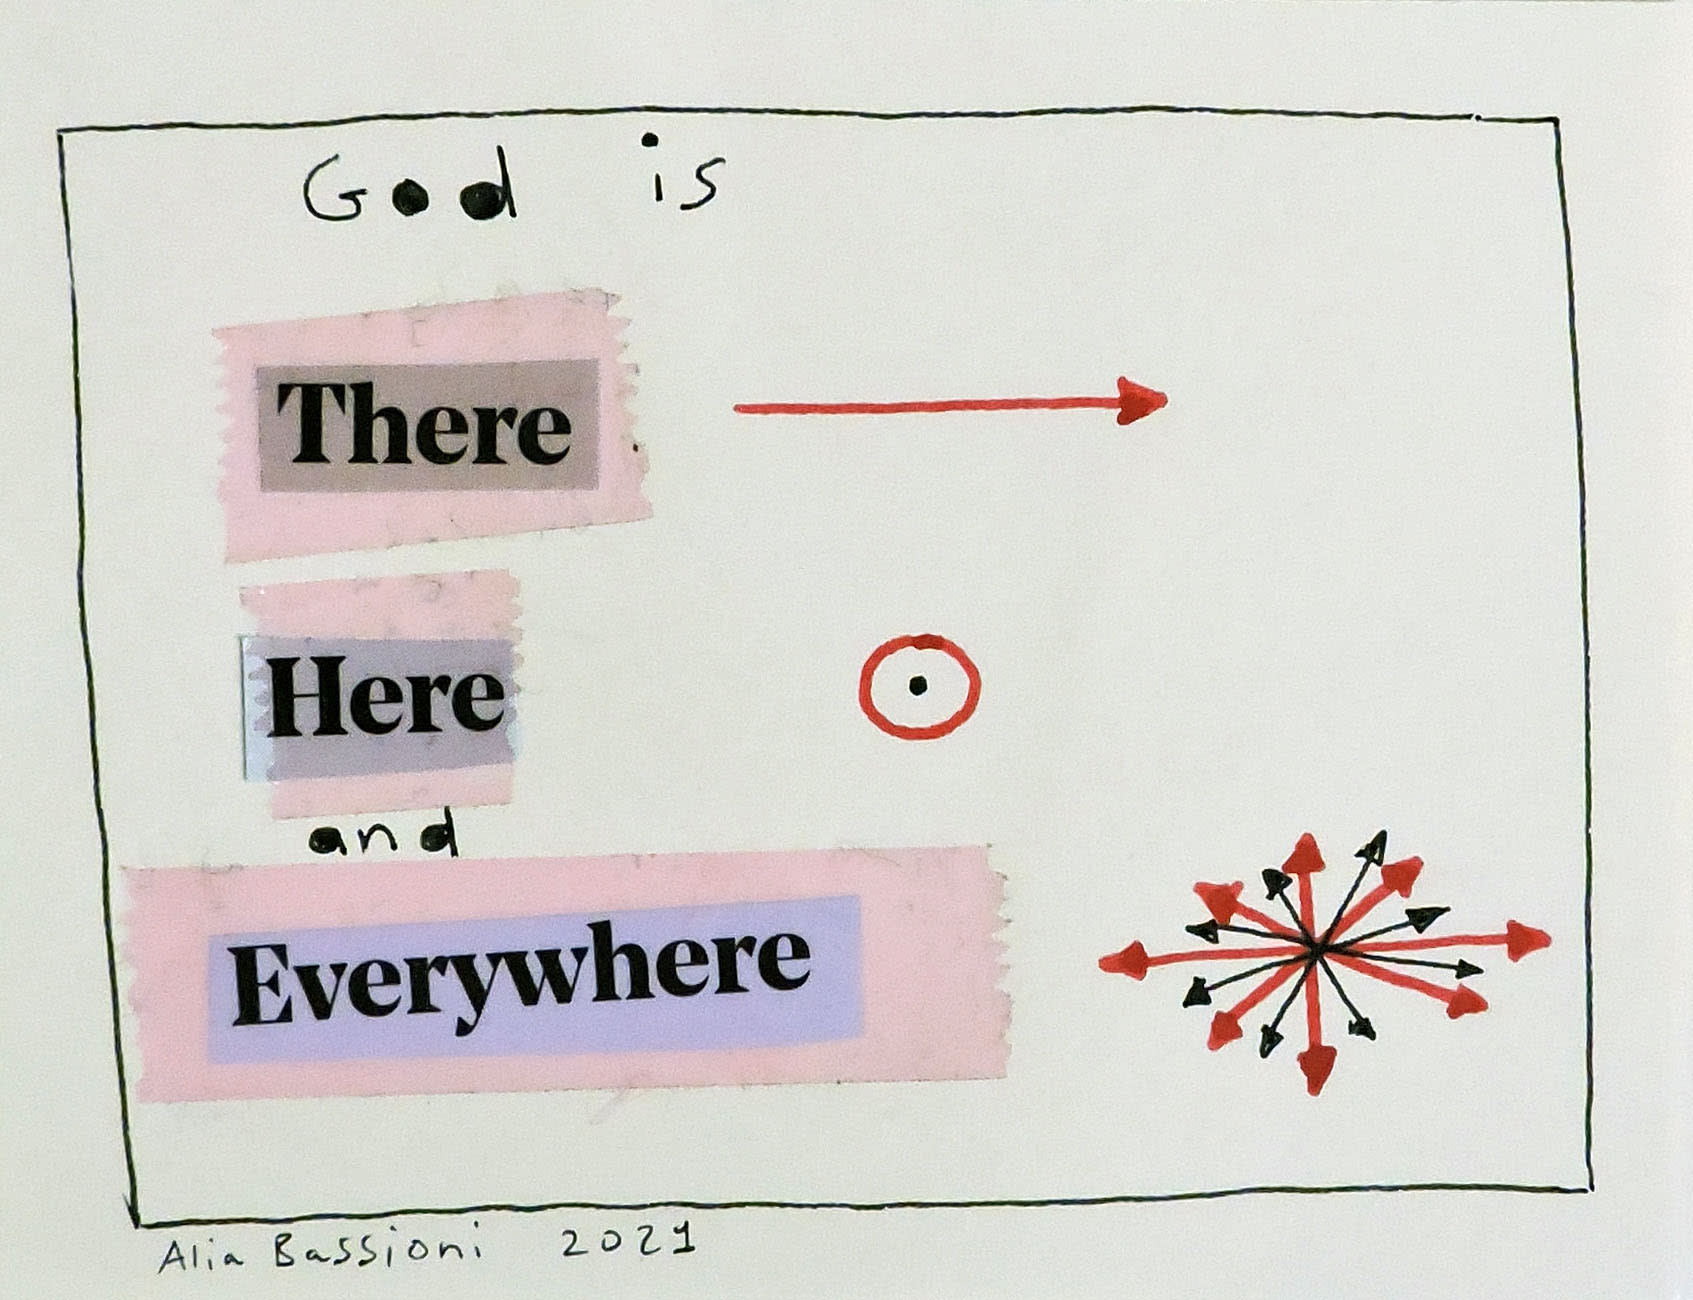 God is
There
Here
and
Everywhere
Alia Bassioni 2021